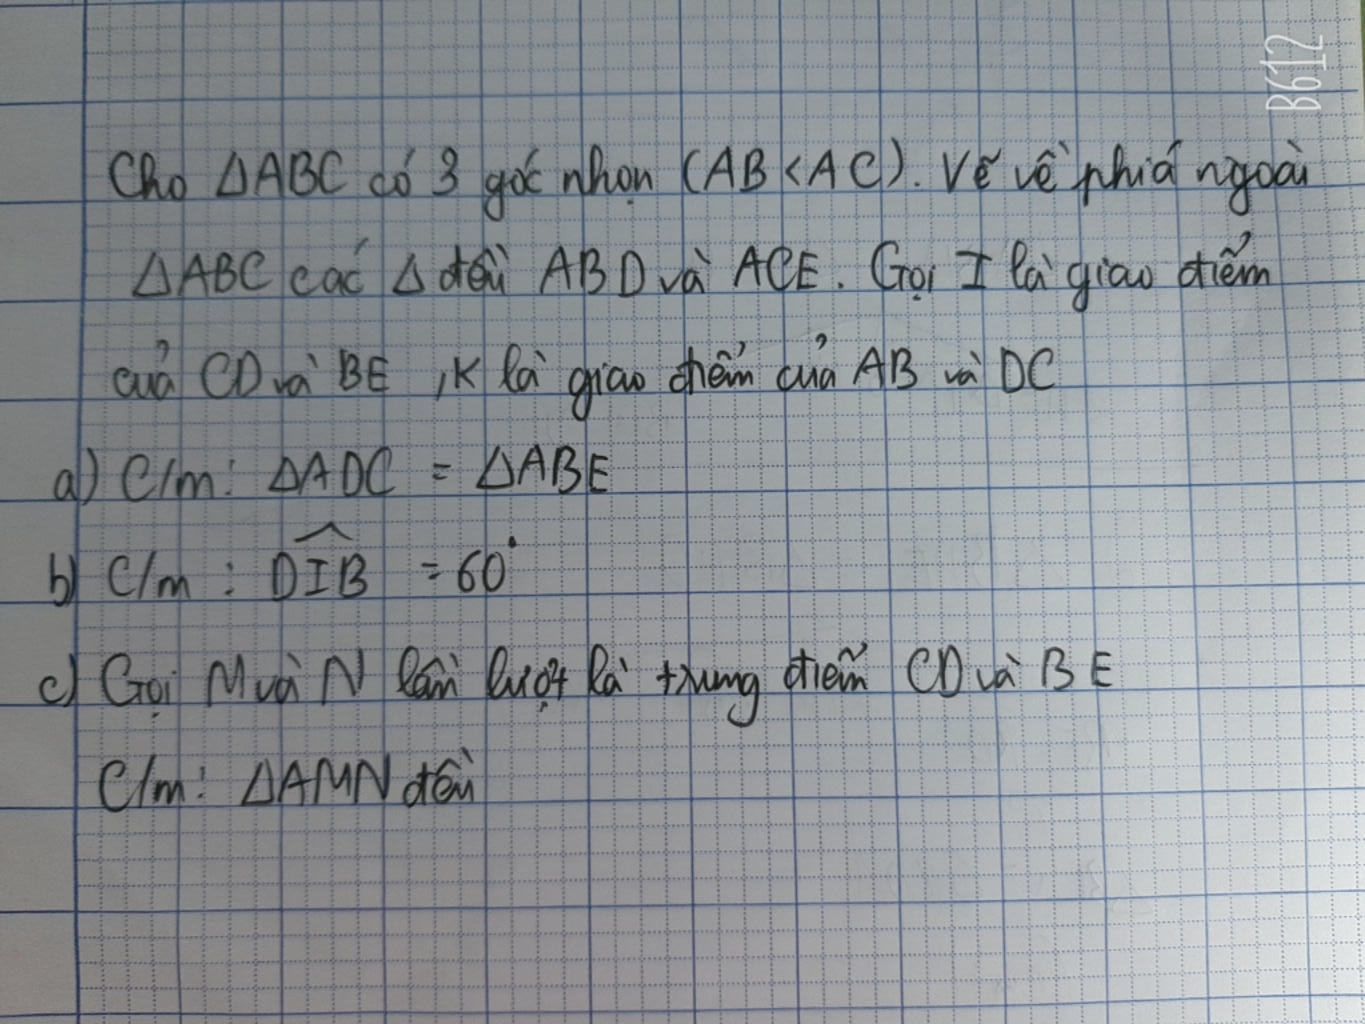 Cho ΔABC có 3 góc nhọn (AB<AC). Vẽ về phiá ngoài
ΔABC các Δ đều ABD và ACE. Gọi I là giao điểm
của CD và BE, K là giao điểm của AB và DC
a) C/m: ΔADC = ΔABE
b) C/m: \widehat{DIB} = 60°
c) Gọi M và N lần lượt là trung điểm CD và BE
C/m: ΔAMN đều
B612